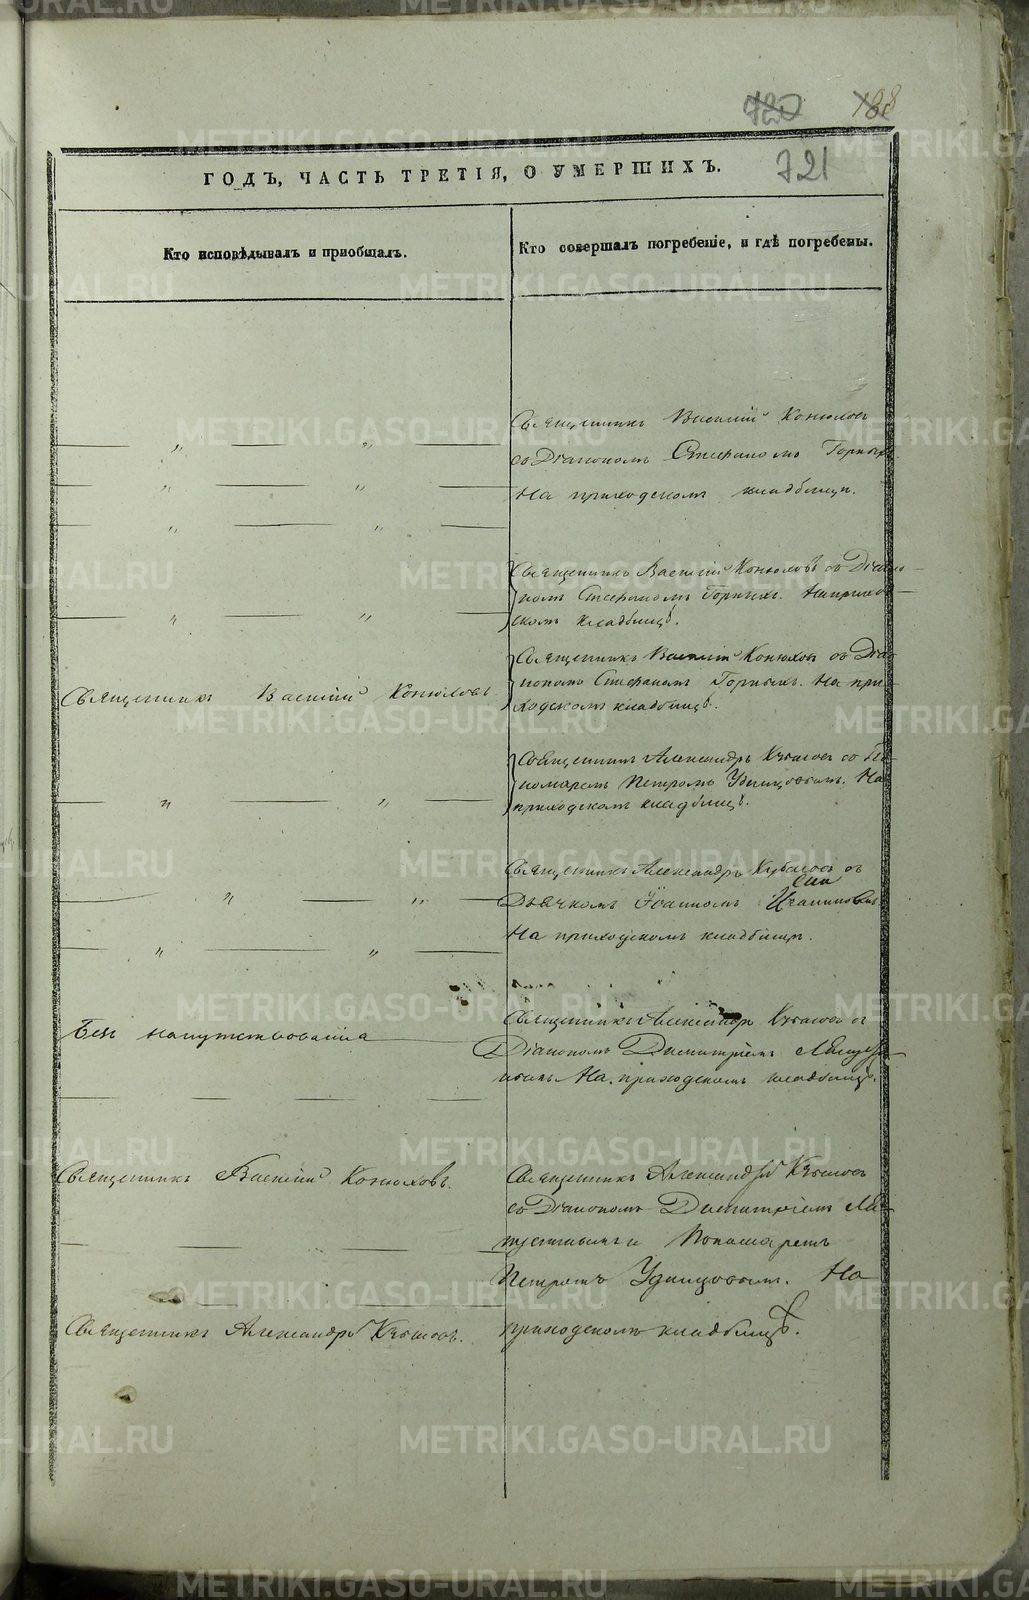 720
188
721
ГОДЪ, ЧАСТЬ ТРЕТІЯ, О УМЕРШИХЪ.
Кто исповѣдывалъ и приобщалъ.
Кто совершалъ погребеніе, и гдѣ погребены.
Священникъ Василій Конюховъ
съ Діакономъ Стефаномъ Горныхъ.
На приходскомъ кладбищѣ.
Священникъ Василій Конюховъ съ Діако-
номъ Стефаномъ Горныхъ. На приход-
скомъ кладбищѣ.
Священникъ Василій Конюховъ
Священникъ Василій Конюховъ съ Діа-
кономъ Стефаномъ Горныхъ. На при-
ходскомъ кладбищѣ.
Священникъ Александръ съ По-
номаремъ Петромъ Удинцовымъ. На
приходскомъ кладбищѣ.
Священникъ Александръ съ
Дьячкомъ Іоанномъ
На приходскомъ кладбищѣ.
Безъ напутствованія
Священникъ Александръ съ
Діакономъ Димитріемъ
На приходскомъ кладбищѣ.
Священникъ Василій Конюховъ.
Священникъ Александръ
съ Діакономъ Димитріемъ
и Пономаремъ
Петромъ Удинцовымъ. На
Священникъ Александръ
приходскомъ кладбищѣ.
METRIKI.GASO-URAL.RU